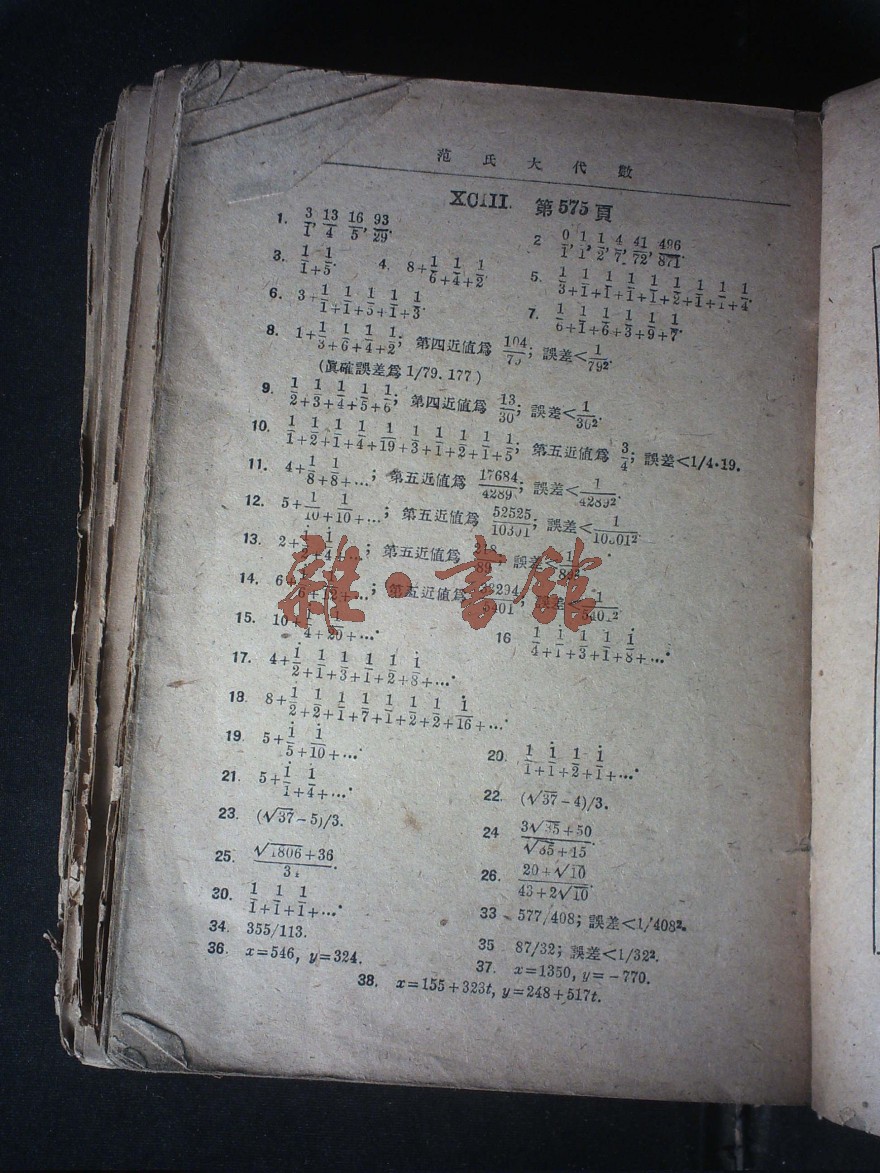 范氏大代數
XCIII. 第575頁
1. 3/1, 13/4, 16/5, 93/29. 2 0/1, 1/1, 1/2, 4/7, 41/72, 496/871.
3. 1/1+1/5. 4. 8+1/6+1/4+1/2. 5. 1/3+1/1+1/1+1/1+1/2+1/1+1/1+1/4.
6. 3+1/1+1/1+1/5+1/1+1/3. 7. 1/6+1/1+1/6+1/3+1/9+1/7.
8. 1+1/3+1/6+1/4+1/2; 第四近值爲 104/79; 誤差<1/79².
(眞確誤差爲 1/79.177)
9. 1/2+1/3+1/4+1/5+1/6; 第四近值爲 13/30; 誤差<1/30².
10. 1/1+1/2+1/1+1/4+1/19+1/3+1/1+1/2+1/1+1/5; 第五近値爲 3/4; 誤差<1/4·19.
11. 4+1/8+1/8+…; 第五近值爲 17684/4289; 誤差<1/4289².
12. 5+1/10+1/10+…; 第五近值爲 52525/10301; 誤差<1/10301².
13. 2+ +1/4+…; 第五近值爲 /89; 誤差<
14. 6+ /6+ /12+…; 第五近值爲 誤差<
15. 10+1/4+1/20+…. 16 1/4+1/1+1/3+1/1+1/8+….
17. 4+1/2+1/1+1/3+1/1+1/2+1/8+….
18. 8+1/2+1/2+1/1+1/7+1/1+1/2+1/2+1/16+….
19. 5+1/5+1/10+…. 20. 1/1+1/1+1/2+1/1+….
21. 5+1/1+1/4+…. 22. (√37-4)/3.
23. (√37-5)/3. 24 (3√35+50)/(√35+45)
25. (√1806+36)/3 26. (20+√10)/(43+2√10).
30. 1/1+1/1+1/1+…. 33 577/408; 誤差<1/408².
34. 355/113. 35 87/32; 誤差<1/32².
36. x=546, y=324. 37. x=1350, y=-770.
38. x=155+323t, y=248+517t.
雜·書館